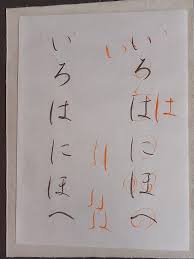 は
いろはにほへ
い
いろはにほへ